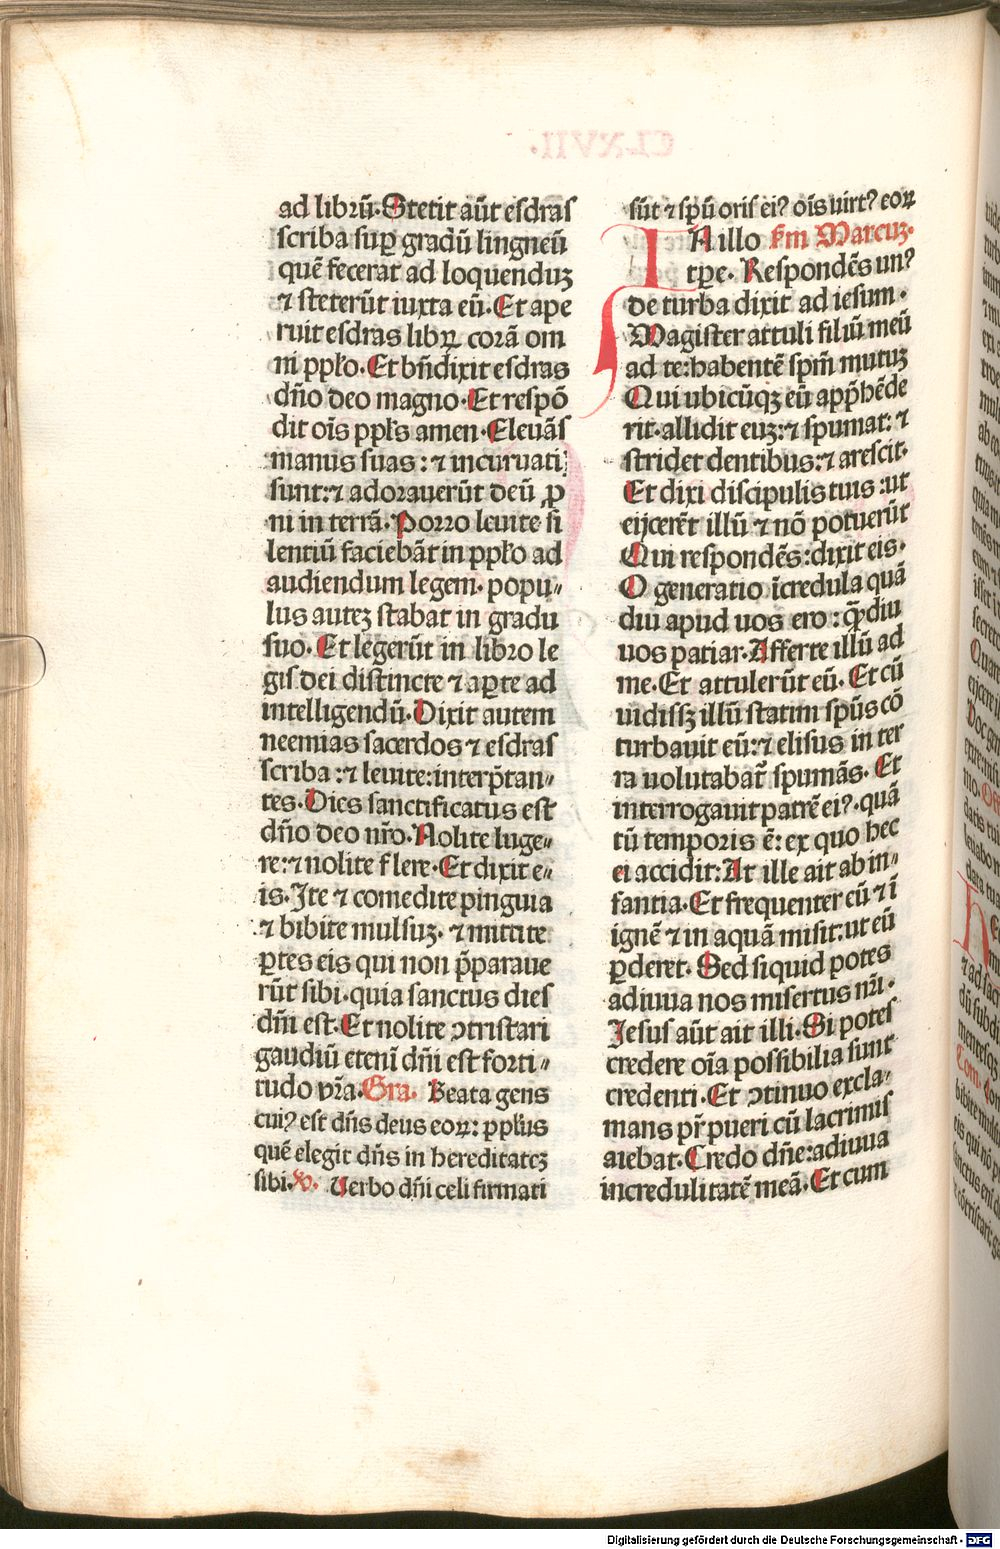 ad librū. Stetit aūt esdras
scriba suꝑ gradū lingneū
quē fecerat ad loquenduꝫ
⁊ steterūt iuxta eū. Et ape
ruit esdras libꝝ corā om
ni ppło. Et bn̄dixit esdras
dn̄o deo magno. Et respō
dit oīs ppłs amen. Eleuās
manus suas: ⁊ incuruati
sunt: ⁊ adorauerūt deū ꝓ
ni in terrā. Porro leuite si
lentiū faciebāt in ppło ad
audiendum legem. popu⸗
lus auteꝫ stabat in gradu
suo. Et legerūt in libro le
gis dei distincte ⁊ aꝑte ad
intelligendū. Dixit autem
neemias sacerdos ⁊ esdras
scriba: ⁊ leuite: interp̄tan⸗
tes. Dies sanctificatus est
dn̄o deo nr̄o. Nolite luge⸗
re: ⁊ nolite flere. Et dixit e⸗
is. Ite ⁊ comedite pinguia
⁊ bibite mulsuꝫ. ⁊ mittite
ꝑtes eis qui non p̄paraue
rūt sibi. quia sanctus dies
dn̄i est. Et nolite ↄtristari
gaudiū etenī dn̄i est forti⸗
tudo vr̄a. Gra. Beata gens
cuiꝰ est dn̄s deus eoꝝ: ppłus
quē elegit dn̄s in hereditateꝫ
sibi. v. Uerbo dn̄i celi firmati
sūt ⁊ spū oris eiꝰ oīs uirtꝰ eoꝝ
IN illo Sm Marcuꝫ.
tp̄e. Respondēs unꝰ
de turba dixit ad iesum.
Magister attuli filiū meū
ad te: habentē spm̄ mutuꝫ
Qui ubicūqꝫ eū app̄hēde
rit. allidit euꝫ: ⁊ spumat: ⁊
stridet dentibus: ⁊ arescit.
Et dixi discipulis tuis: ut
eijcerēt illū ⁊ nō potuerūt
Qui respondēs: dixit eis.
O generatio īcredula quā
diu apud uos ero: q̄ diu
uos patiar. Afferte illū ad
me. Et attulerūt eū. Et cū
uidissꝫ illū statim spūs cō
turbauit eū: ⁊ elisus in ter
ra uolutabat᷑ spumās. Et
interrogauit patrē eiꝰ. quā
tū temporis ē: ex quo hec
ei accidit: At ille ait ab in⸗
fantia. Et frequenter eū ⁊ ī
ignē ⁊ in aquā misit: ut eū
ꝑderet. Sed siquid potes
adiuua nos misertus nr̄i.
Jesus aūt ait illi. Si potes
credere oīa possibilia sunt
credenti. Et ↄtinuo excla⸗
mans pr̄ pueri cū lacrimis
aiebat. Credo dn̄e: adiuua
incredulitatē meā. Et cum
Digitalisierung gefördert durch die Deutsche Forschungsgemeinschaft - DFG